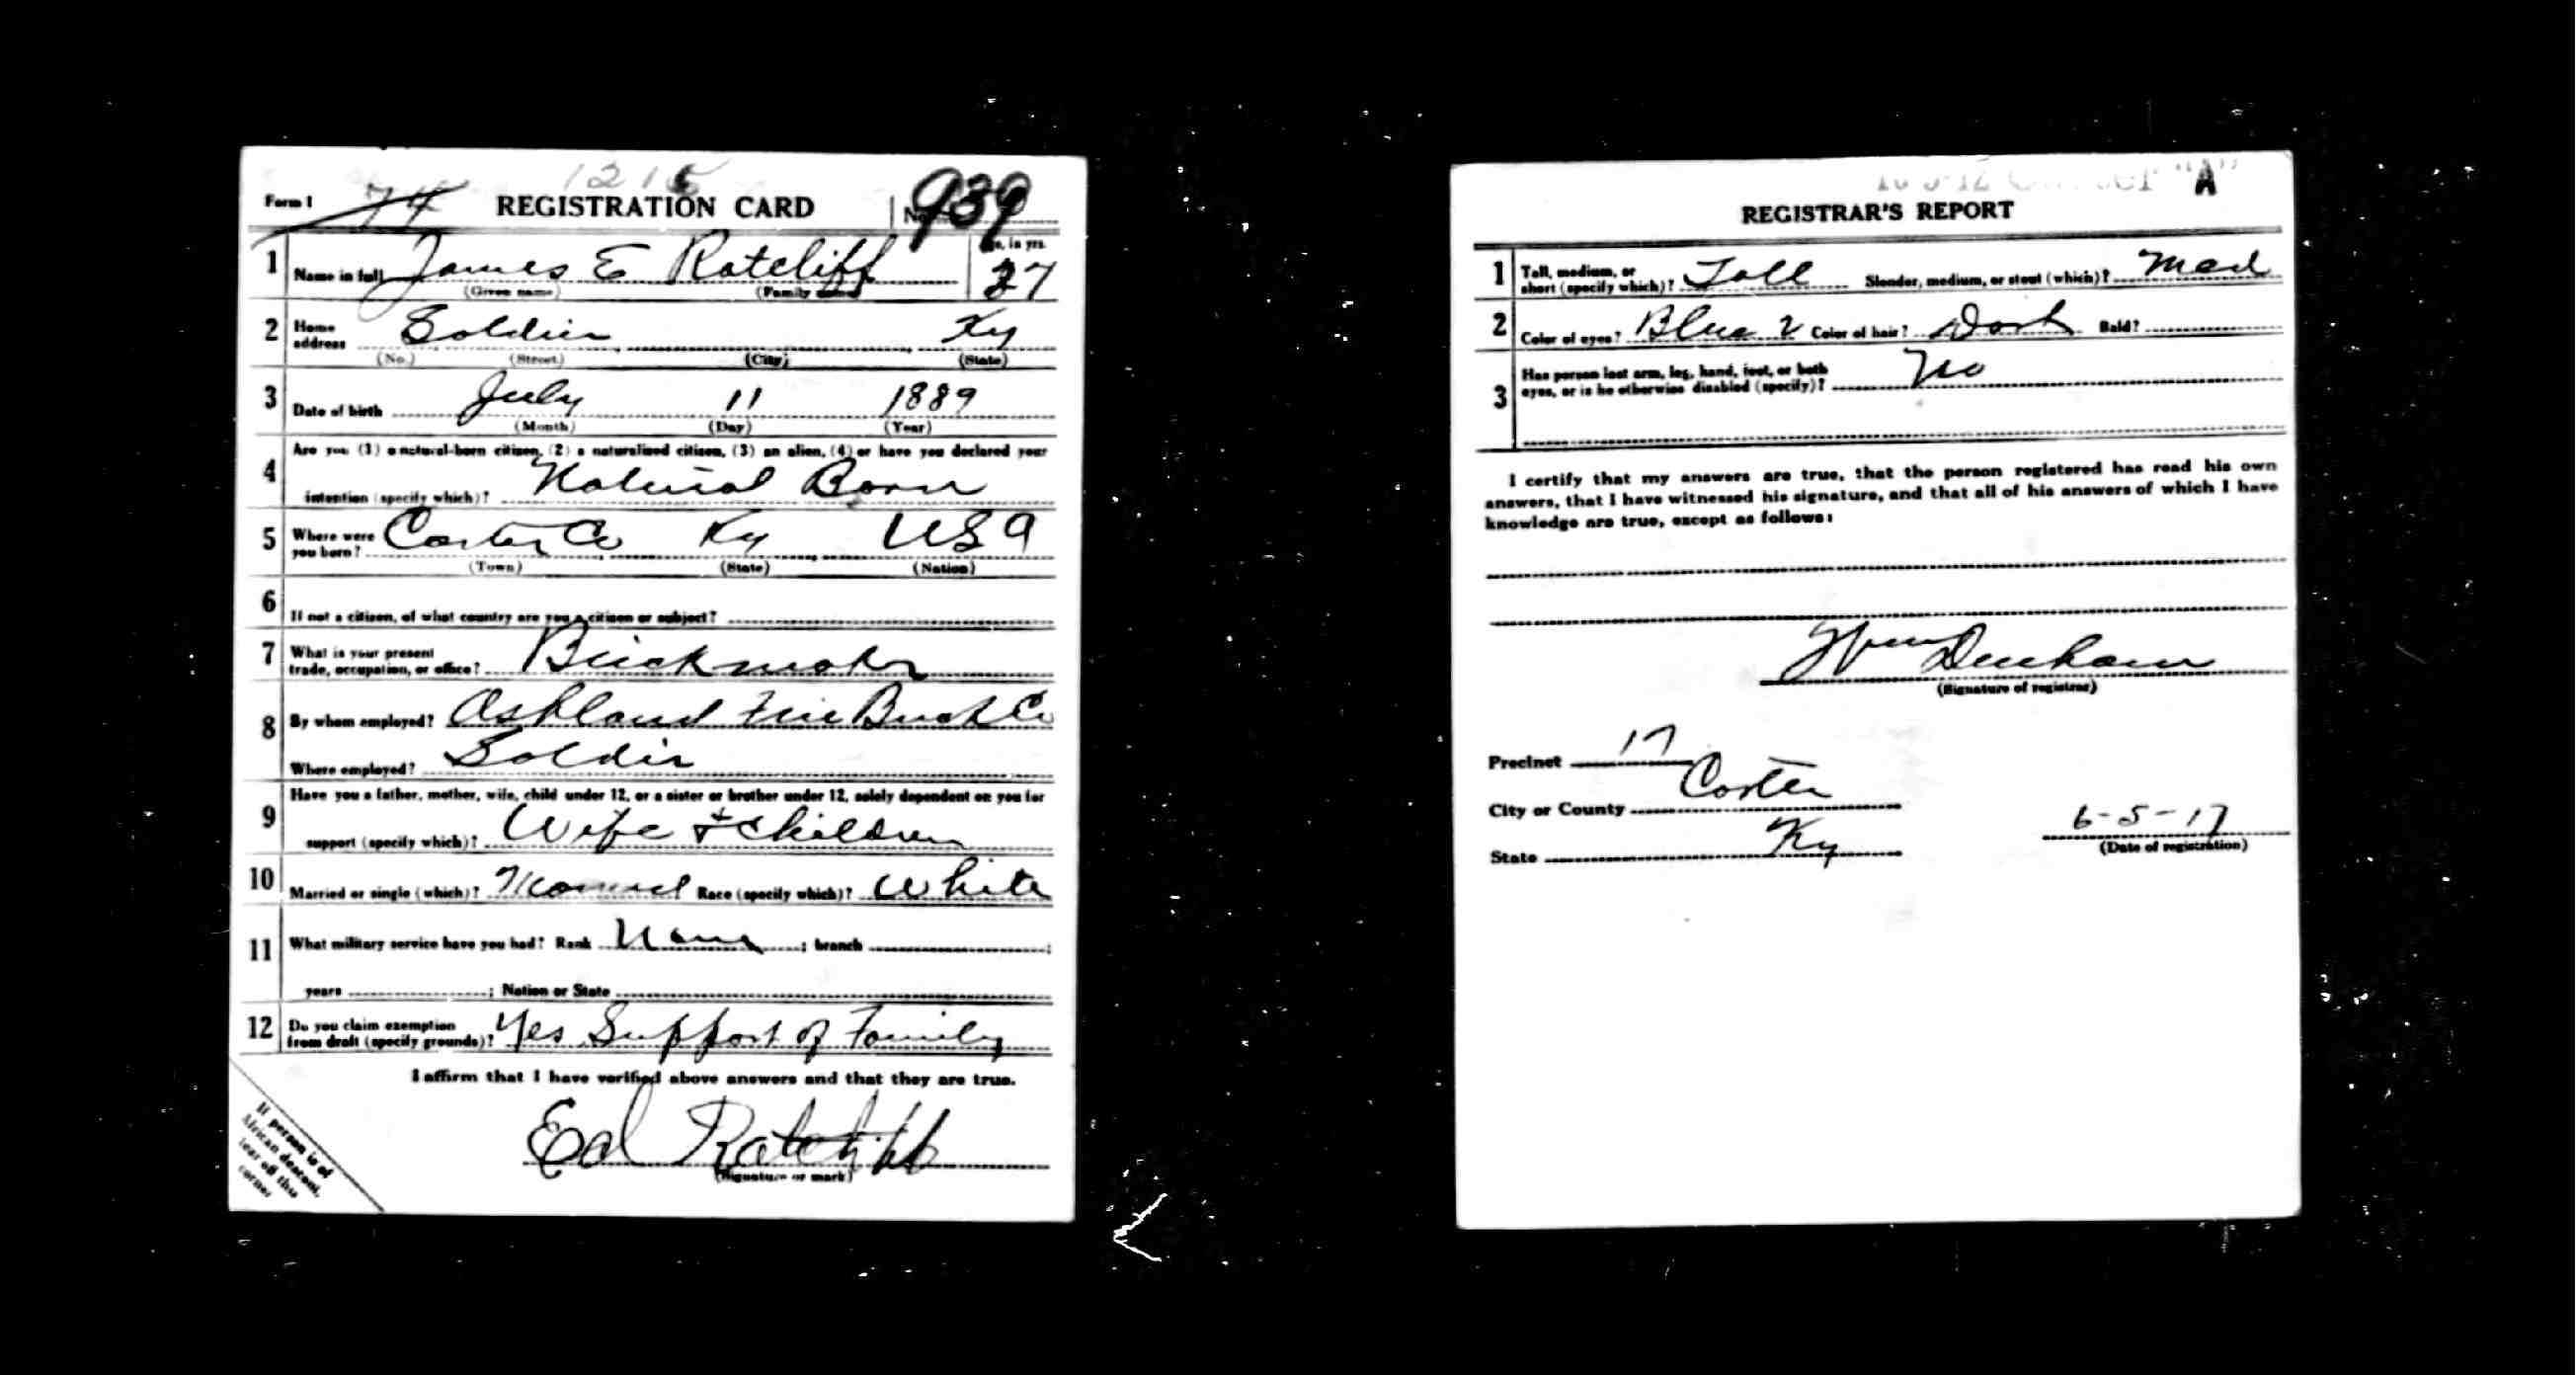 1215
Form 1 74 REGISTRATION CARD No. 939
1 Name in full James E Ratcliff Age, in yrs. 27
(Given name) (Family name)
2 Home address Soldier Ky
(No.) (Street) (City) (State)
3 Date of birth July 11 1889
(Month) (Day) (Year)
4 Are you (1) a natural-born citizen, (2) a naturalized citizen, (3) an alien, (4) or have you declared your
intention (specify which)? Natural Born
5 Where were you born? Carter Co Ky USA
(Town) (State) (Nation)
6 If not a citizen, of what country are you a citizen or subject?
7 What is your present
trade, occupation, or office? Brickmaker
8 By whom employed? Ashland Fire Brick Co
Where employed? Soldier
9 Have you a father, mother, wife, child under 12, or a sister or brother under 12, solely dependent on you for
support (specify which)? Wife + children
10 Married or single (which)? Married Race (specify which)? White
11 What military service have you had? Rank None ; branch ;
years ; Nation or State
12 Do you claim exemption
from draft (specify grounds)? Yes Support of Family
I affirm that I have verified above answers and that they are true.
Ed Ratcliff
(Signature or mark)
If person is of
African descent,
tear off this
corner
"A"
REGISTRAR'S REPORT
1 Tall, medium, or
short (specify which)? Tall Slender, medium, or stout (which)? Med
2 Color of eyes? Blue Color of hair? Dark Bald?
3 Has person lost arm, leg, hand, foot, or both
eyes, or is he otherwise disabled (specify)? No
I certify that my answers are true, that the person registered has read his own
answers, that I have witnessed his signature, and that all of his answers of which I have
knowledge are true, except as follows:
Wm Dunham
(Signature of registrar)
Precinct 17
City or County Carter
State Ky 6-5-17
(Date of registration)